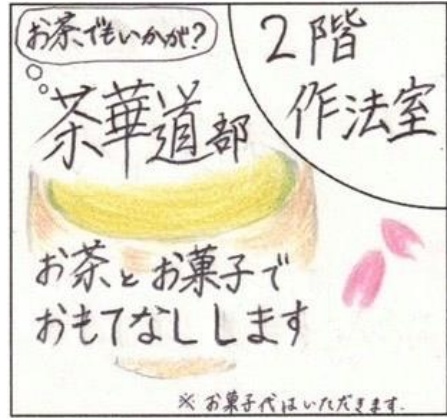 お茶でもいかが?
茶華道部
2階
作法室
お茶とお菓子で
おもてなしします
※お菓子代はいただきます.